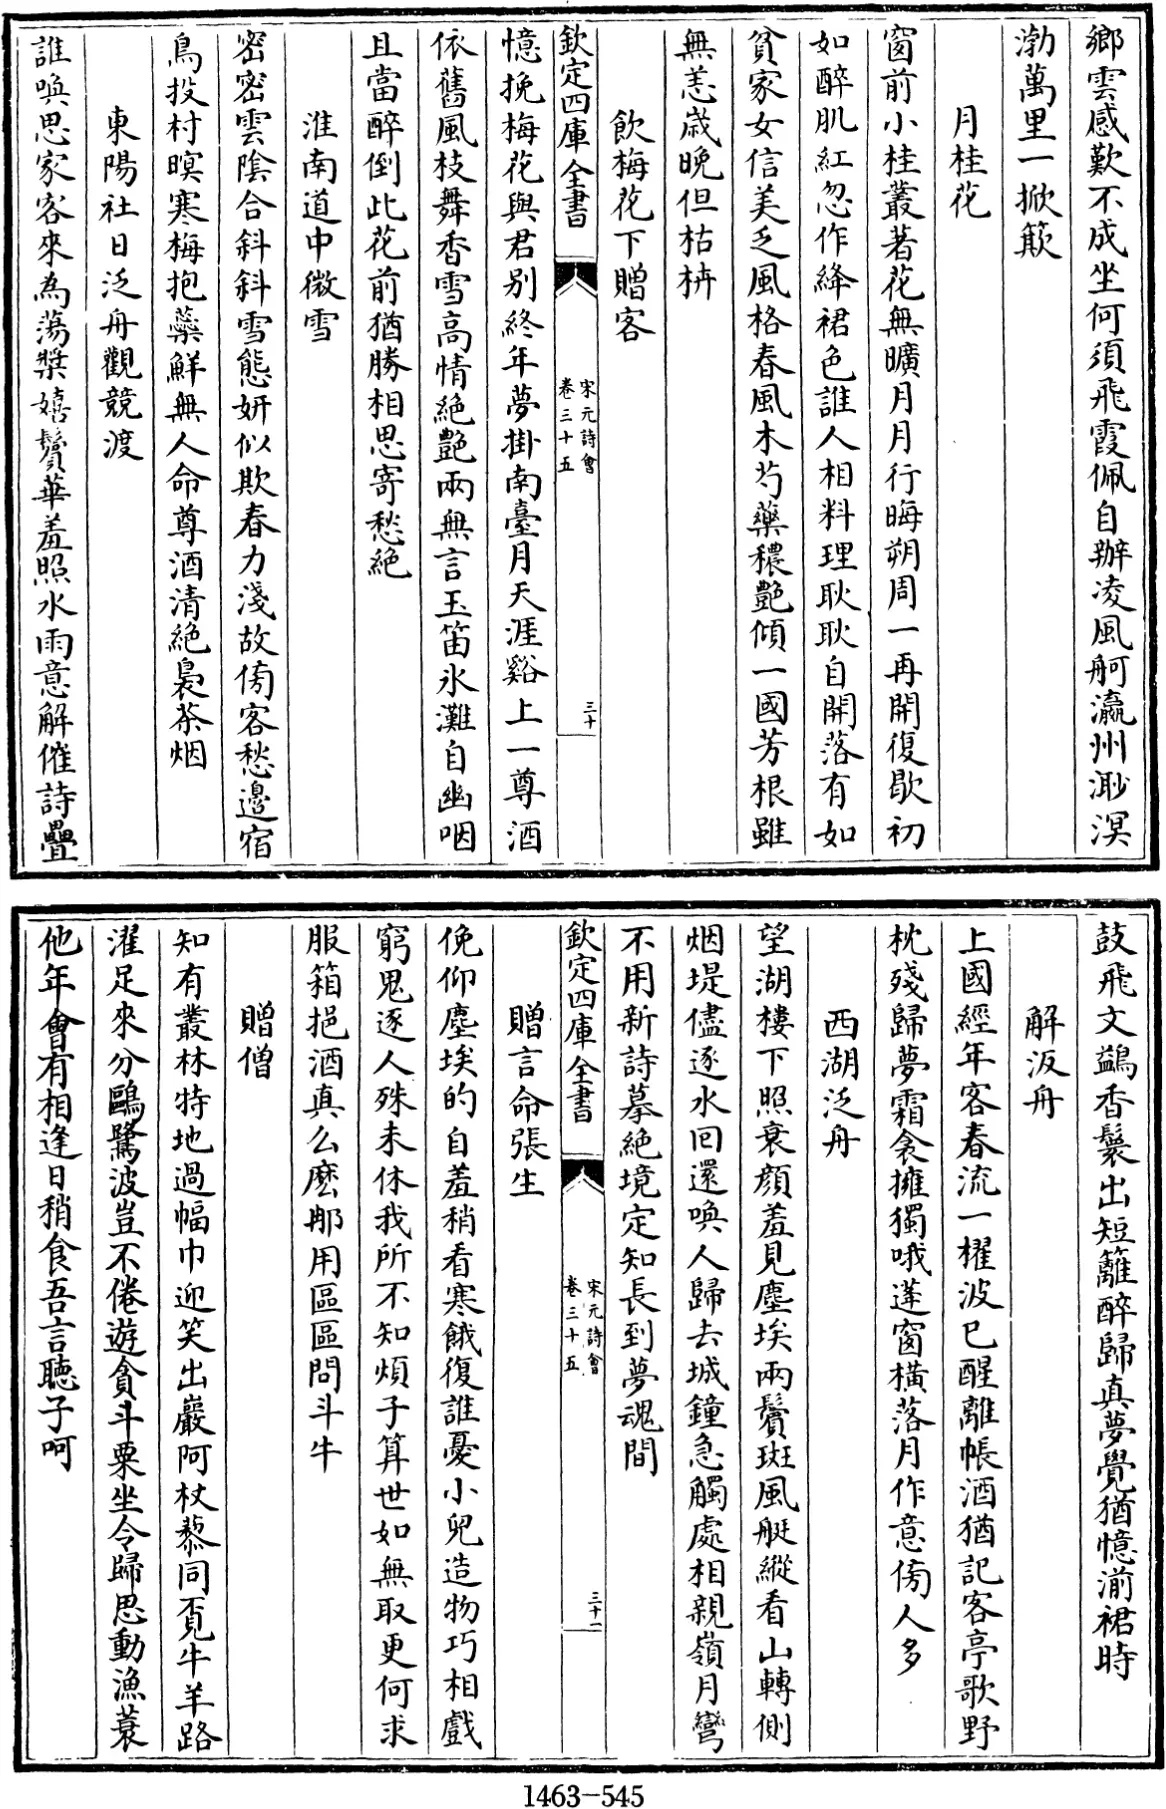 鄉雲感歎不成坐何須飛霞佩自辦凌風舸瀛州渺溟
渤萬里一掀簸
月桂花
窗前小桂叢著花無曠月月行晦朔周一再開復歇初
如醉肌紅忽作絳裙色誰人相料理耿耿自開落有如
貧家女信美乏風格春風木芍藥穠艷傾一國芳根雖
無恙歲晩但枯枿
飲梅花下贈客
欽定四庫全書
宋元詩會
卷三十五
三十
憶挽梅花與君别終年夢掛南臺月天涯谿上一尊酒
依舊風枝舞香雪高情絶艷兩無言玉笛氷灘自幽咽
且當醉倒此花前猶勝相思寄愁絶
淮南道中微雪
密密雲陰合斜斜雪態妍似欺春力淺故傍客愁邊宿
鳥投村暝寒梅抱蘂鮮無人命尊酒清絶裊茶烟
東陽社日泛舟觀競渡
誰喚思家客來為蕩槳嬉鬢華羞照水雨意解催詩疊
鼓飛文鷁香鬟出短籬醉歸真夢覺猶憶湔裙時
解汳舟
上國經年客春流一櫂波已醒離帳酒猶記客亭歌野
枕殘歸夢霜衾擁獨哦蓬窗横落月作意傍人多
西湖泛舟
望湖樓下照衰顔羞見塵埃兩鬢斑風艇縱看山轉側
烟堤儘逐水回還喚人歸去城鐘急觸處相親嶺月彎
不用新詩摹絶境定知長到夢魂間
欽定四庫全書
宋元詩會
卷三十五
三十一
贈言命張生
俛仰塵埃的自羞稍看寒餓復誰憂小兒造物巧相戲
窮鬼逐人殊未休我所不知煩子算世如無取更何求
服箱挹酒真么麽那用區區問斗牛
贈僧
知有叢林特地過幅巾迎笑出巖阿杖藜同覓牛羊路
濯足來分鷗鷺波豈不倦遊貪斗粟坐令歸思動漁蓑
他年會有相逢日稍食吾言聽子呵
1463-545